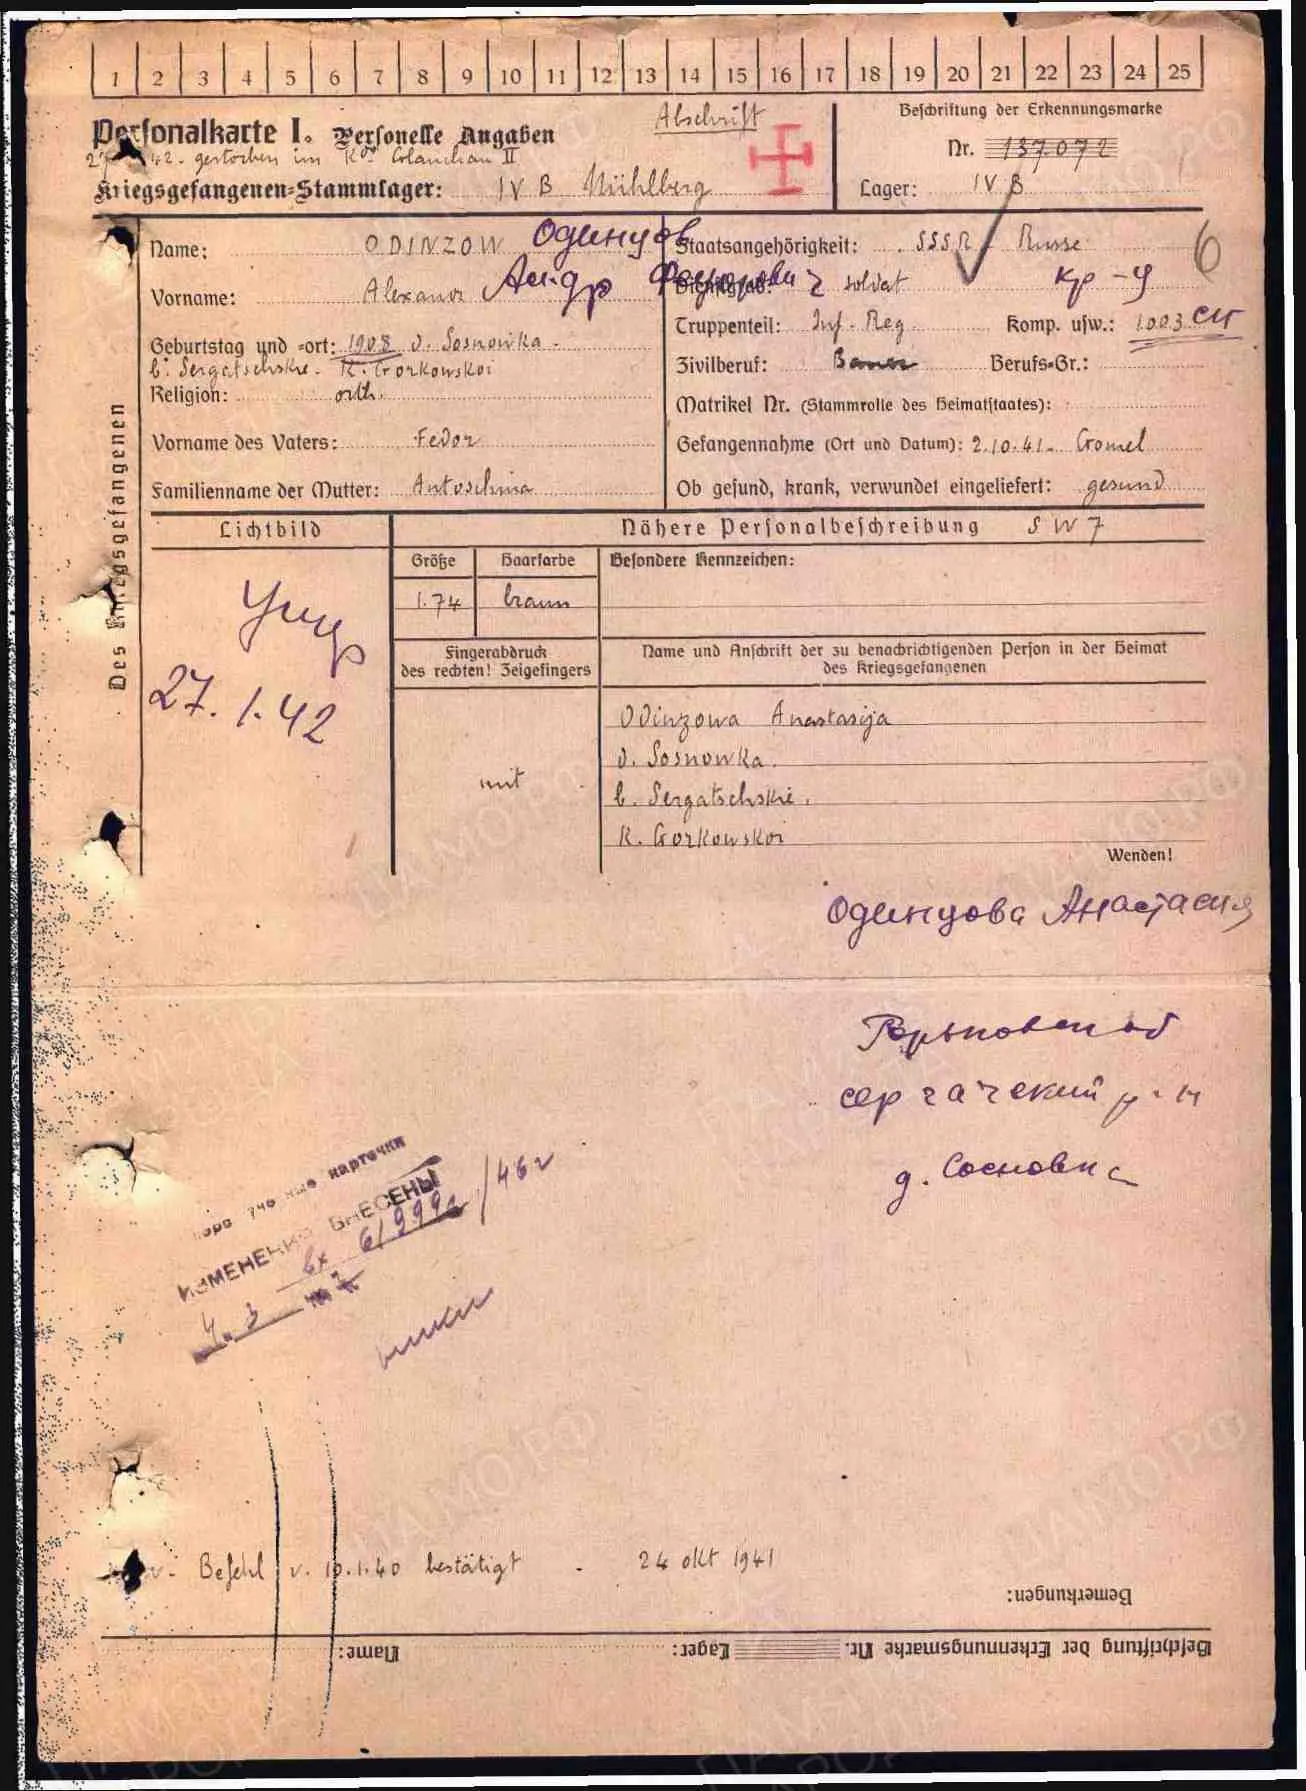 1 2 3 4 5 6 7 8 9 10 11 12 13 14 15 16 17 18 19 20 21 22 23 24 25
Personalkarte I. Personelle Angaben
Abschrift
Beschriftung der Erkennungsmarke
Nr. 137.072
42. gestorben im Kdo
II
Kriegsgefangenen-Stammlager: IV B Mühlberg
Lager: IV B
Des Kriegsgefangenen
Name: ODINZOW Одинцов
Staatsangehörigkeit: SSSR - Russe
6
Vorname: Alexandr
Федорович
Dienstgrad: soldat кр-ц
Truppenteil: Inf. Reg. Komp. usw.: 1003 сп
Geburtstag und -ort: 1908 d. Sosnowka.
b. Sergatschskie. K. Gorkowskoi
Zivilberuf: Bauer Berufs-Gr.:
Religion: orth.
Matrikel Nr. (Stammrolle des Heimatstaates):
Vorname des Vaters: Fedor
Gefangennahme (Ort und Datum): 2.10.41. Gomel
Familienname der Mutter: Antoschina
Ob gesund, krank, verwundet eingeliefert: gesund
Lichtbild
Nähere Personalbeschreibung SW 7
Größe Haarfarbe Besondere Kennzeichen:
1.74 braun
Умер
27.1.42
Fingerabdruck
des rechten! Zeigefingers
Name und Anschrift der zu benachrichtigenden Person in der Heimat
des Kriegsgefangenen
Odinzowa Anastasija
d. Sosnowka.
b. Sergatschskie.
K. Gorkowskoi
Wenden!
Одинцова Анастасия
Горьковской
сергачский р-н
д. Сосновка
карточки
ИЗМЕНЕНИЯ ВНЕСЕНЫ
вх 6/999с/46г
Befehl v. 10.1.40 bestätigt - 24 okt 1941
Bemerkungen:
Beschriftung der Erkennungsmarke Nr. Lager: Name:
ЦАМО.РФ